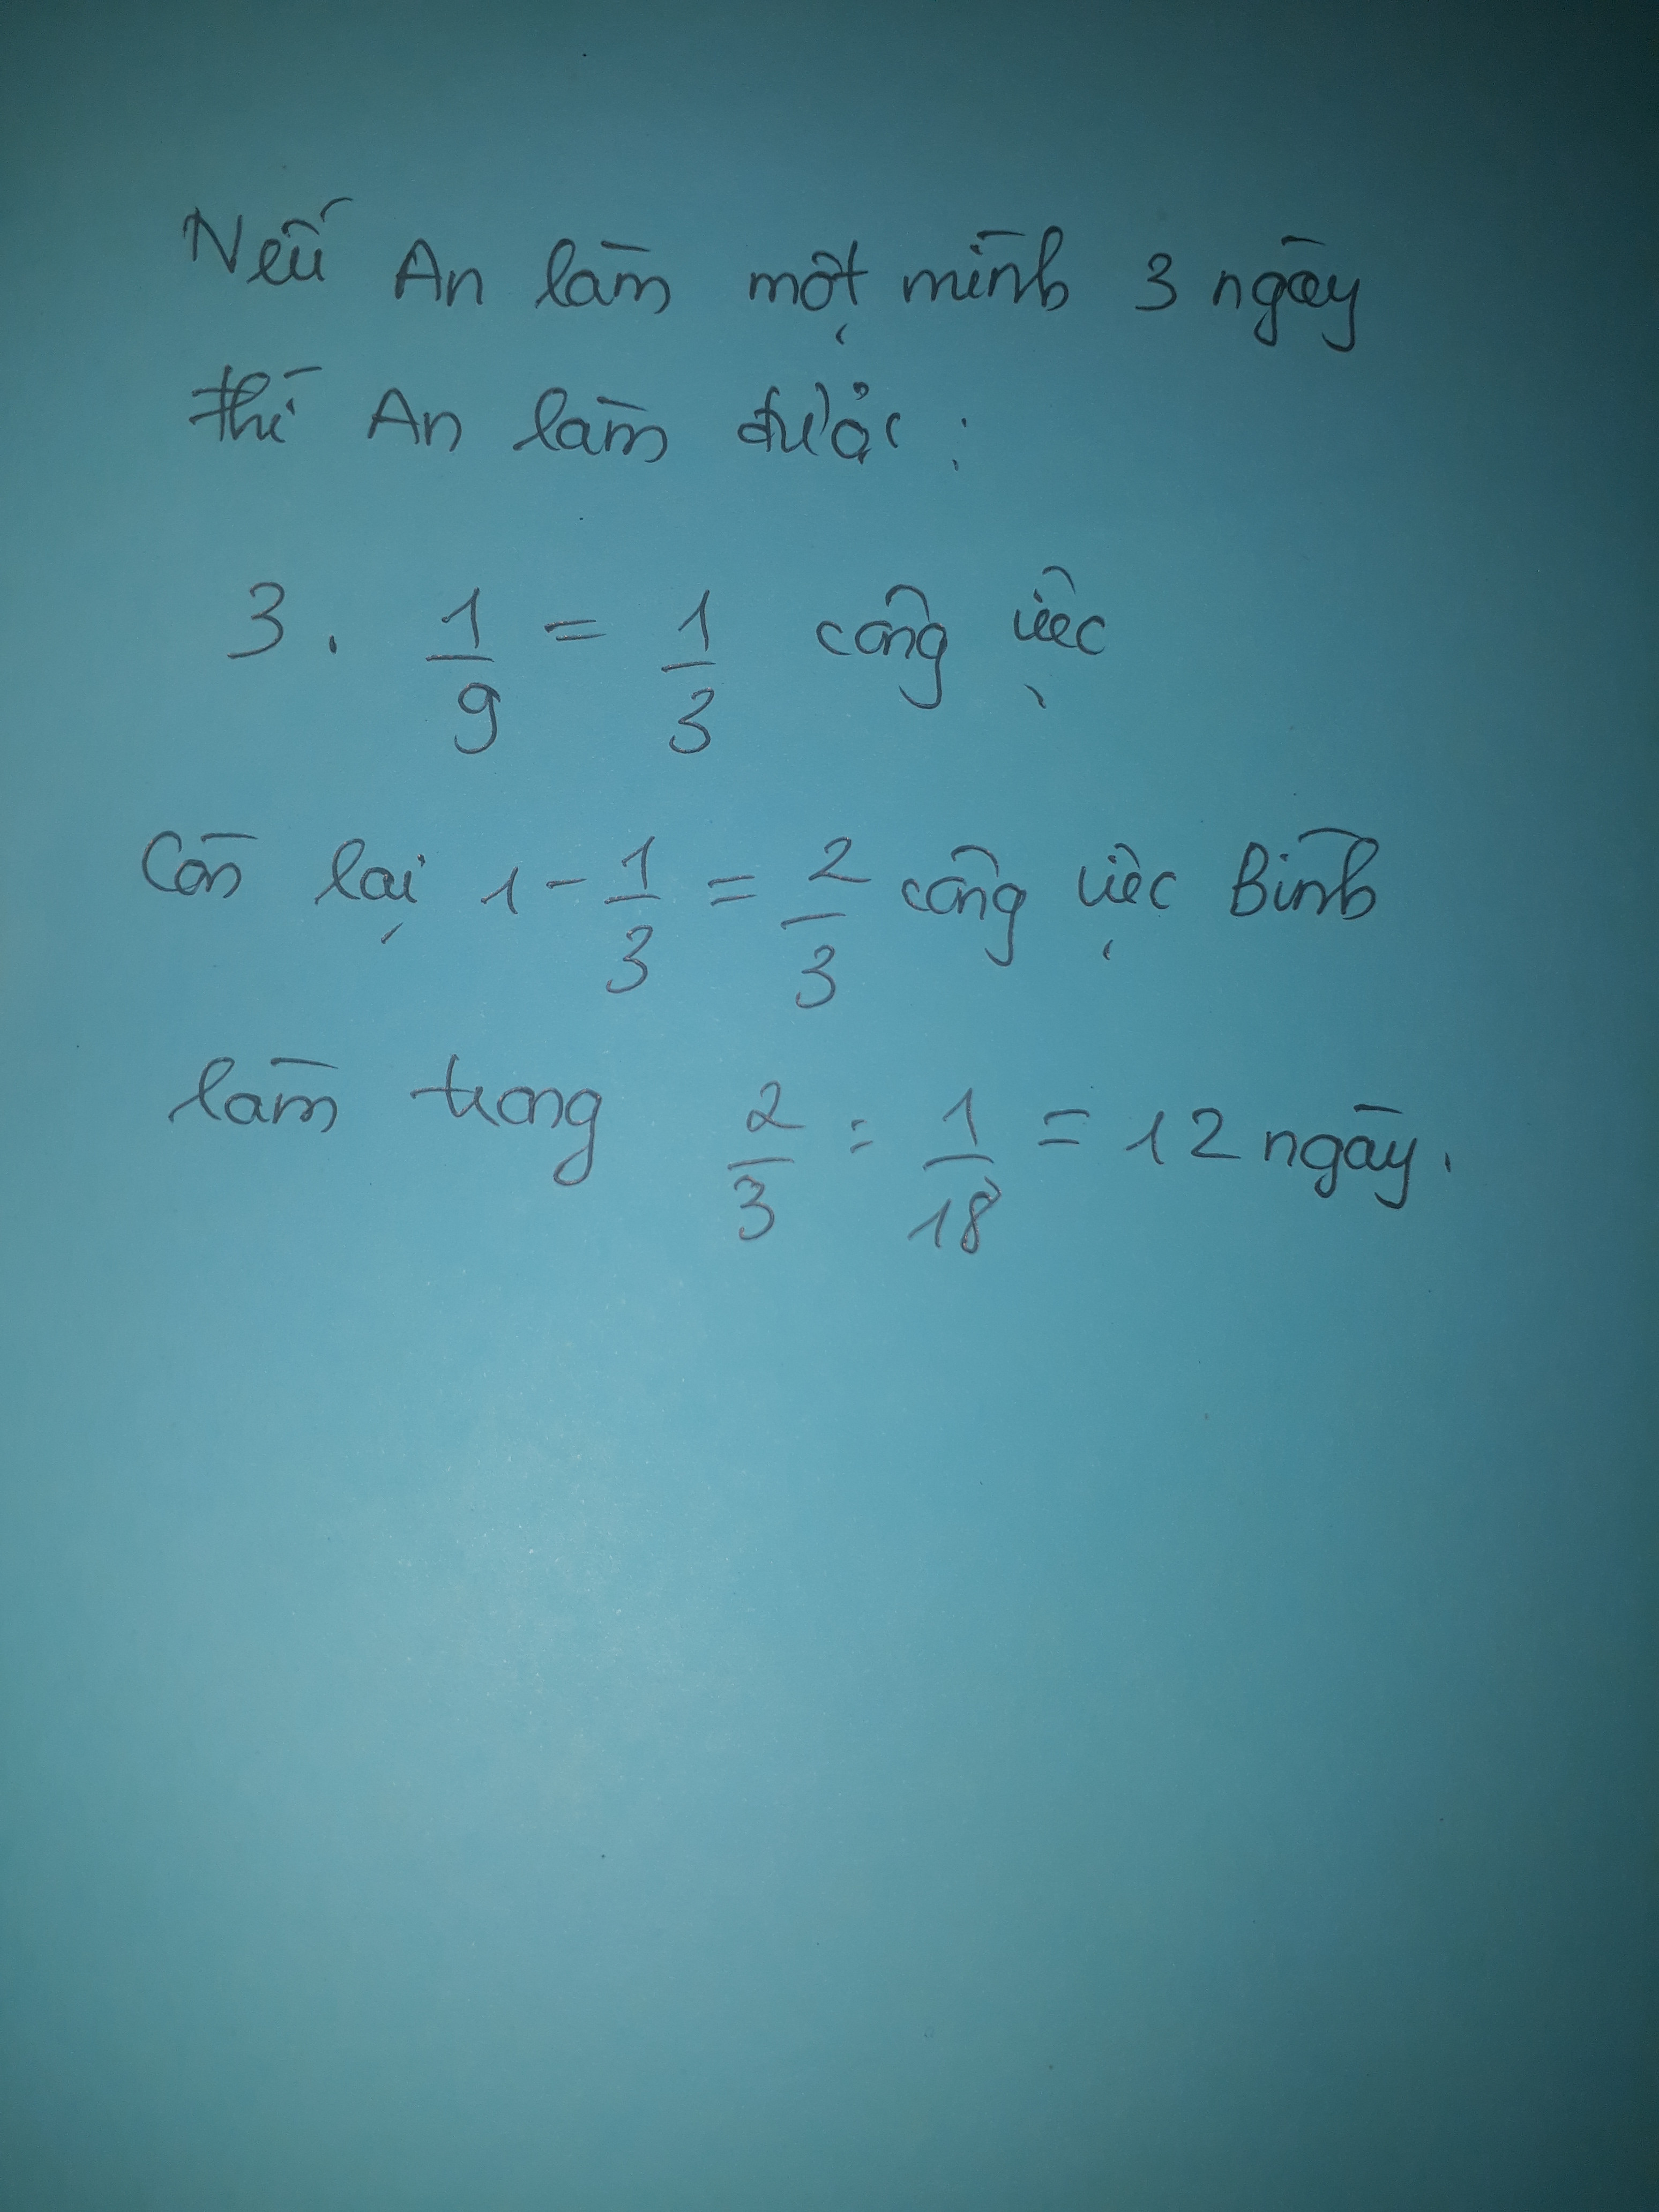 Nếu An làm một mình 3 ngày
thì An làm được:
3 . 1/9 = 1/3 công việc
Còn lại 1 - 1/3 = 2/3 công việc Bình
làm trong 2/3 : 1/18 = 12 ngày.